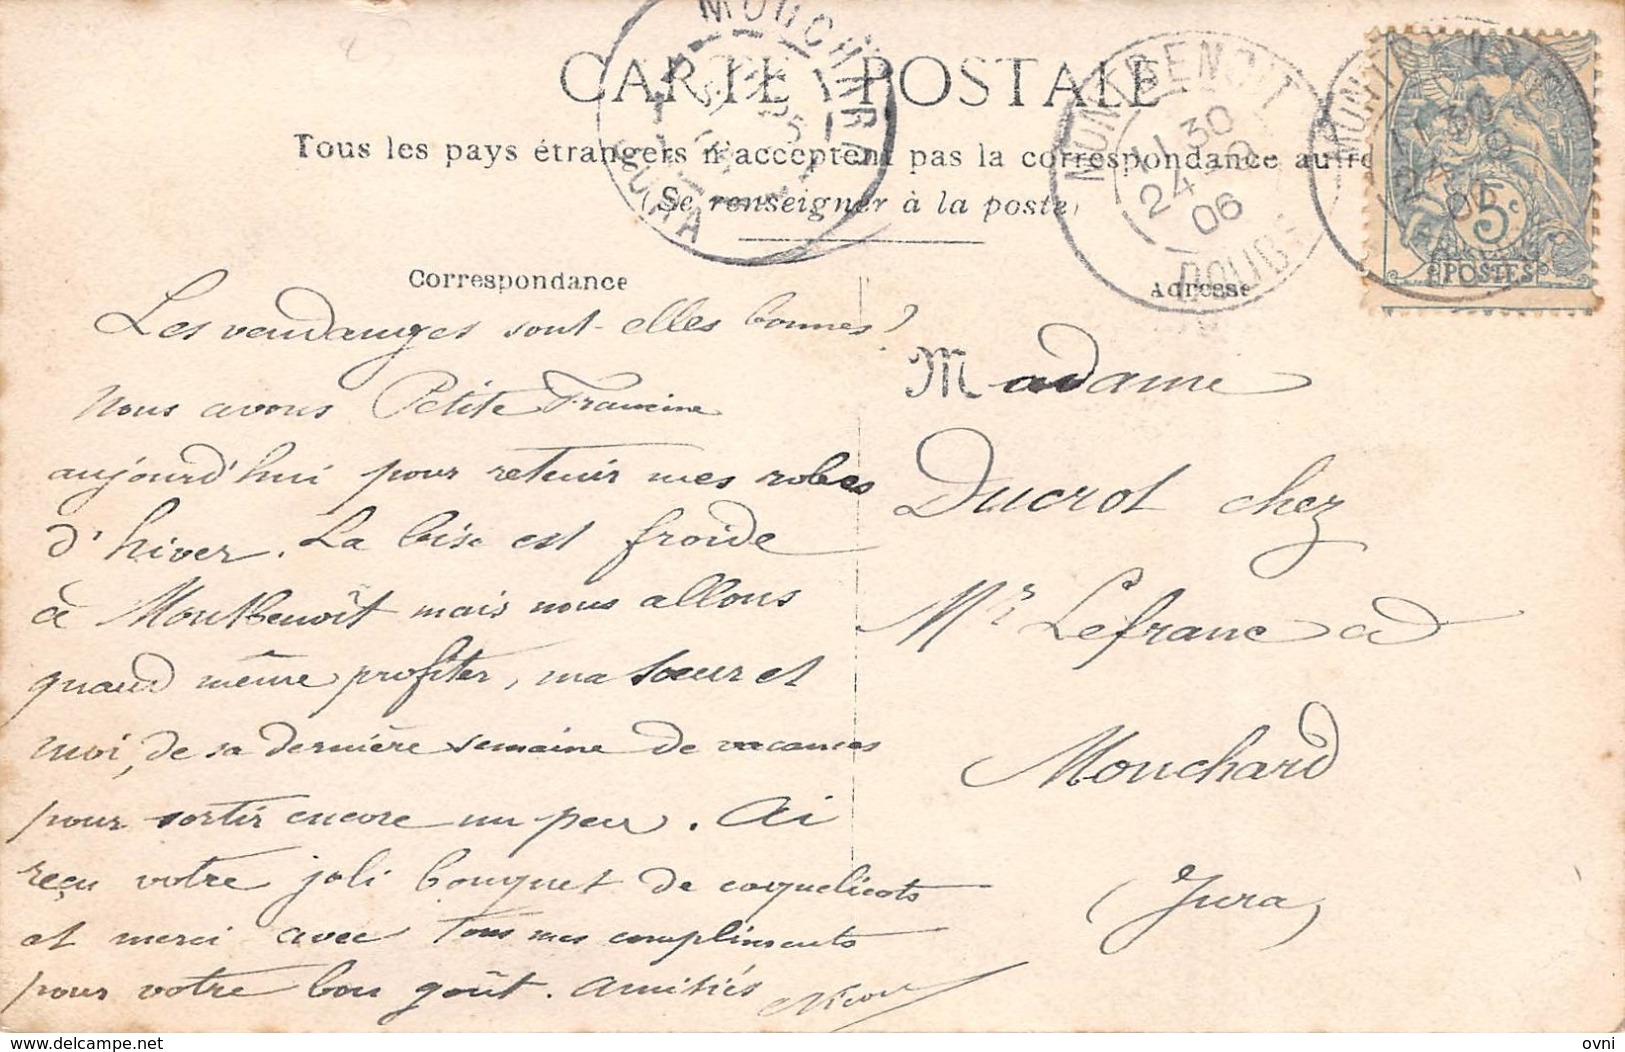 CARTE POSTALE
Tous les pays étrangers n'acceptent pas la correspondance au
(Se renseigner à la poste)
MOUCHARD
JURA
MONTBENOIT
11 30
24
06
DOUBS
5c
POSTES
Correspondance
Les vendanges sont-elles bonnes?
Nous avons Petite Francine
aujourd'hui pour retenir mes robes
d'hiver. La bise est froide
à Montbenoît mais nous allons
quand même profiter, ma soeur et
moi, de sa dernière semaine de vacances
pour sortir encore un peu. Ai
reçu votre joli bouquet de coquelicots
et merci avec tous mes compliments
pour votre bon goût. Amitiés
Adresse
Madame
Ducrot chez
Mr Lefranc
Mouchard
(Jura)
www.delcampe.net
ovni